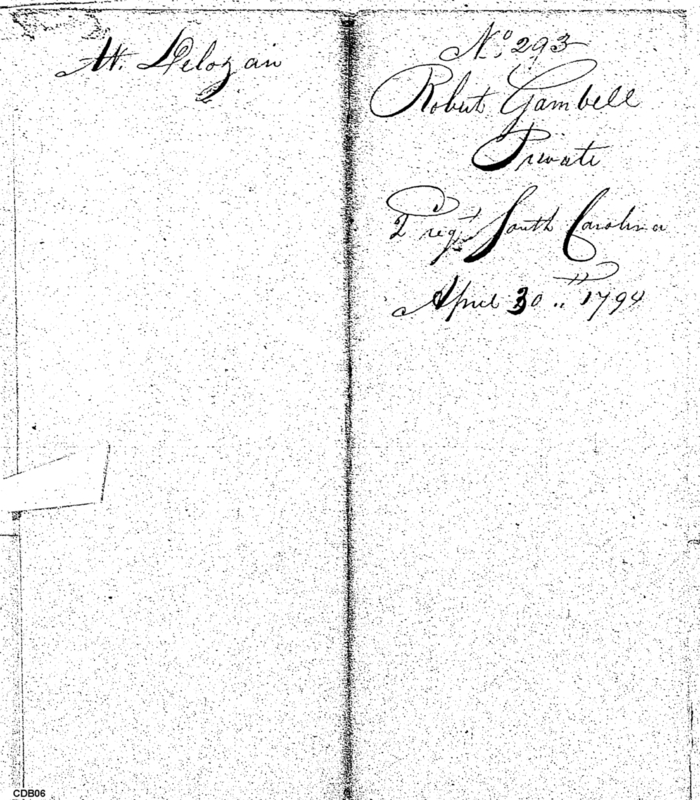 At. Delozain
No. 293
Robert Gambell
Private
2 regt. South Carolina
April 30th 1794
CDB06